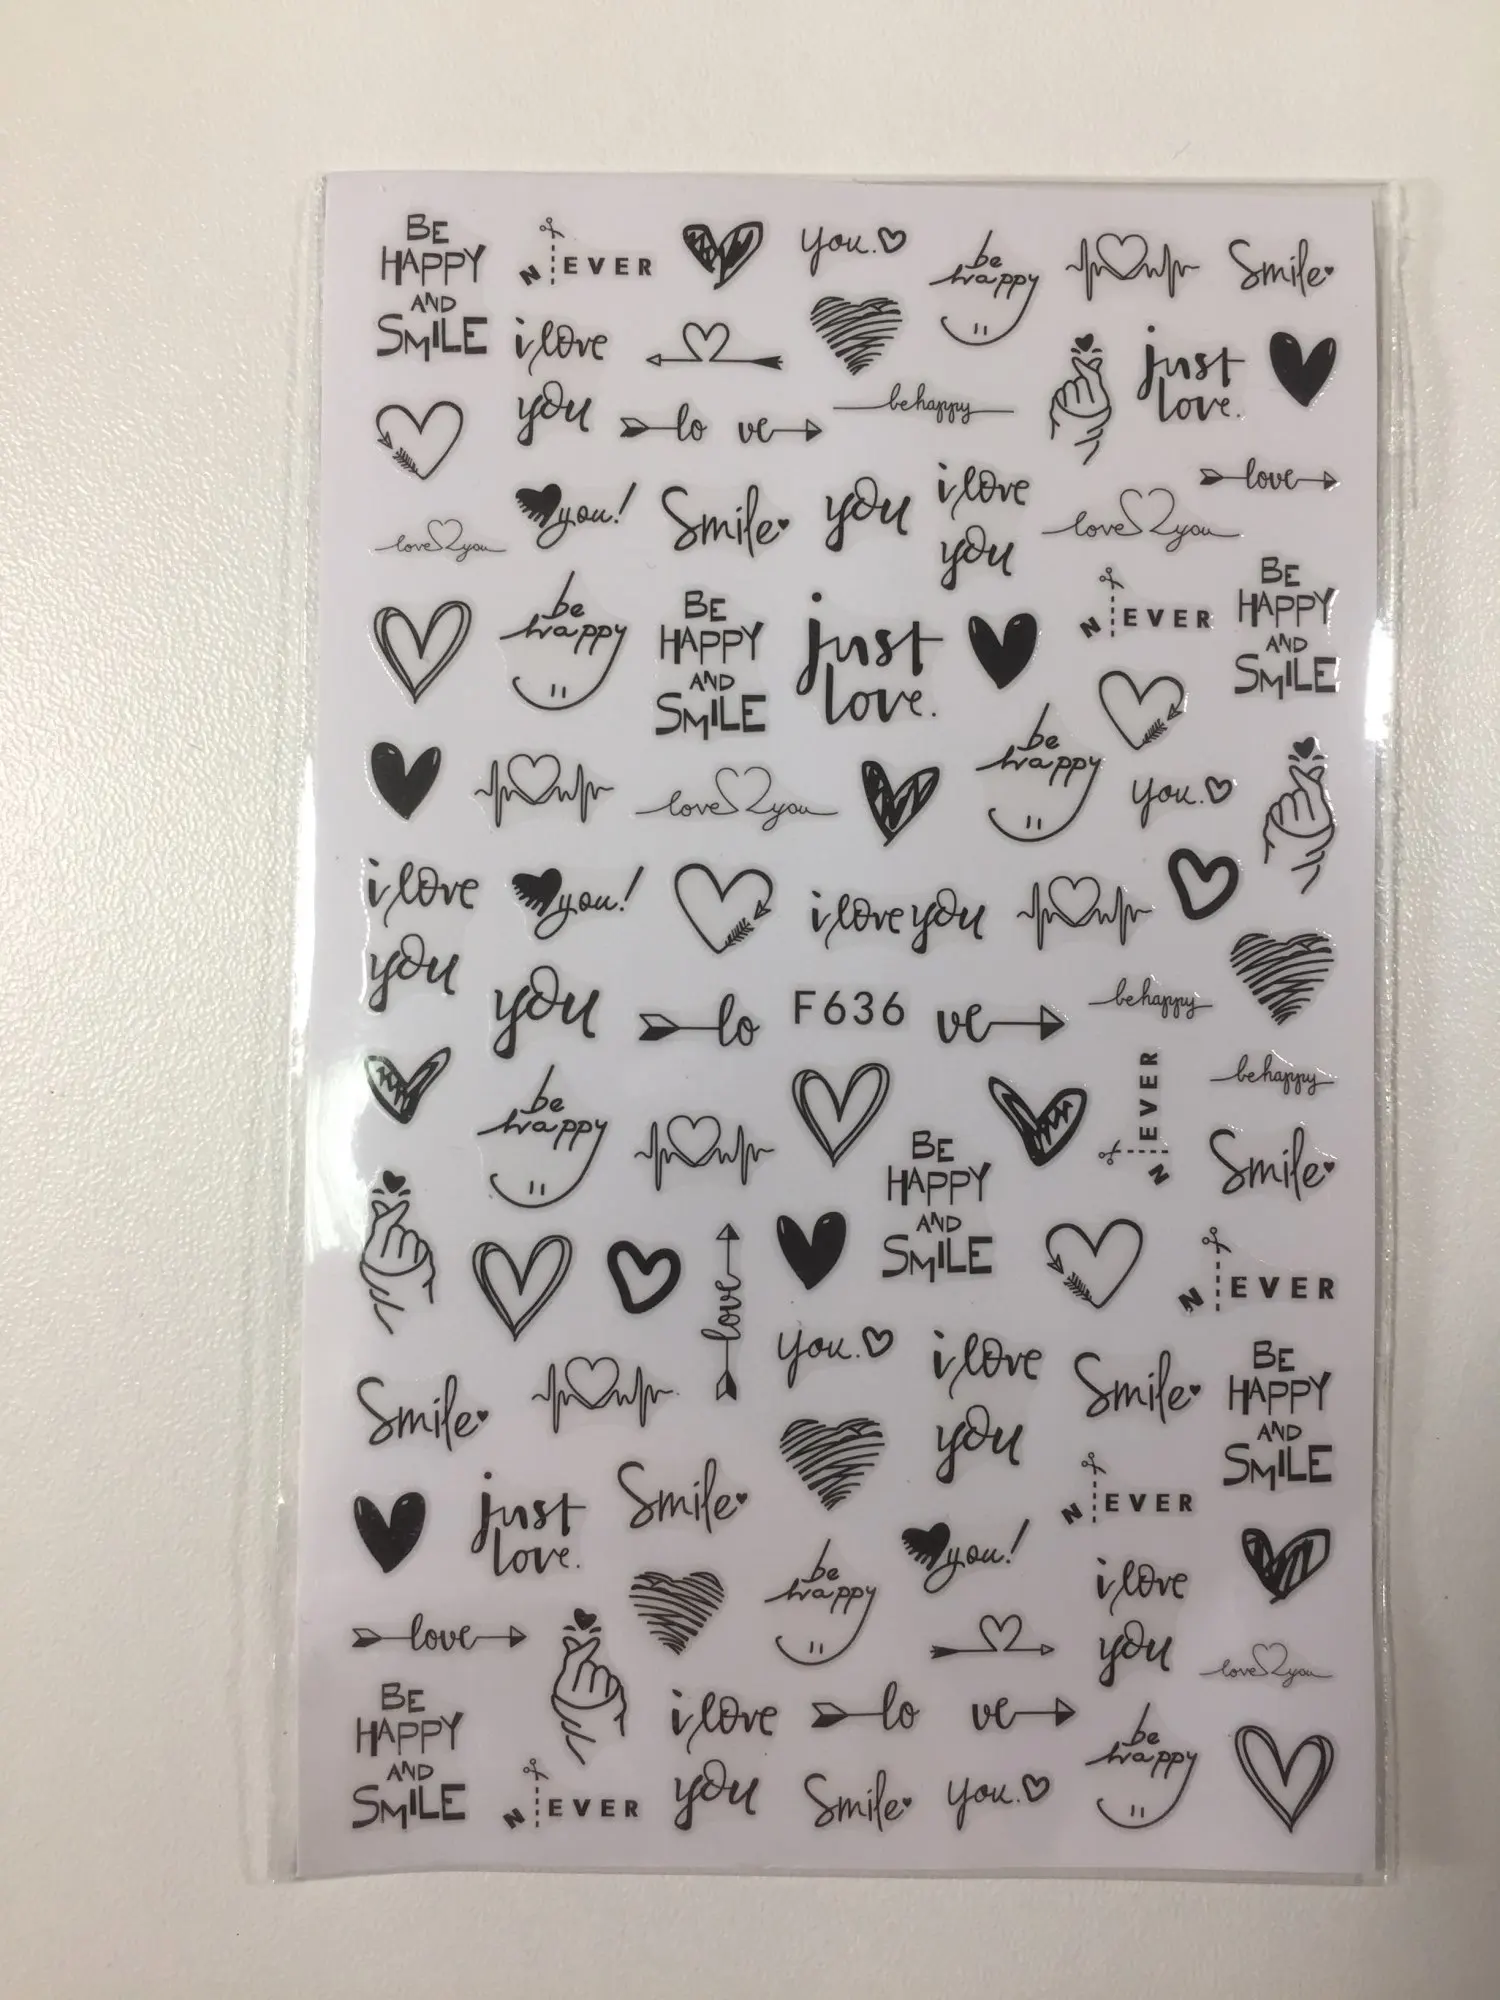 BE
HAPPY
AND
SMILE
NEVER
you.
be
happy
Smile
i love
you
just
love.
be happy
lo ve
love
love you
you!
Smile
you
i love
you
love you
be
happy
BE
HAPPY
AND
SMILE
just
love.
NEVER
BE
HAPPY
AND
SMILE
love you
be
happy
you.
i love
you
you!
i love you
you
lo
F636
ve
be happy
be happy
be
happy
BE
HAPPY
AND
SMILE
NEVER
Smile
love
NEVER
Smile
you.
i love
you
Smile
BE
HAPPY
AND
SMILE
just
love.
Smile
NEVER
you!
be
happy
i love
you
love
love you
BE
HAPPY
AND
SMILE
NEVER
i love
you
lo ve
Smile
you.
be
happy